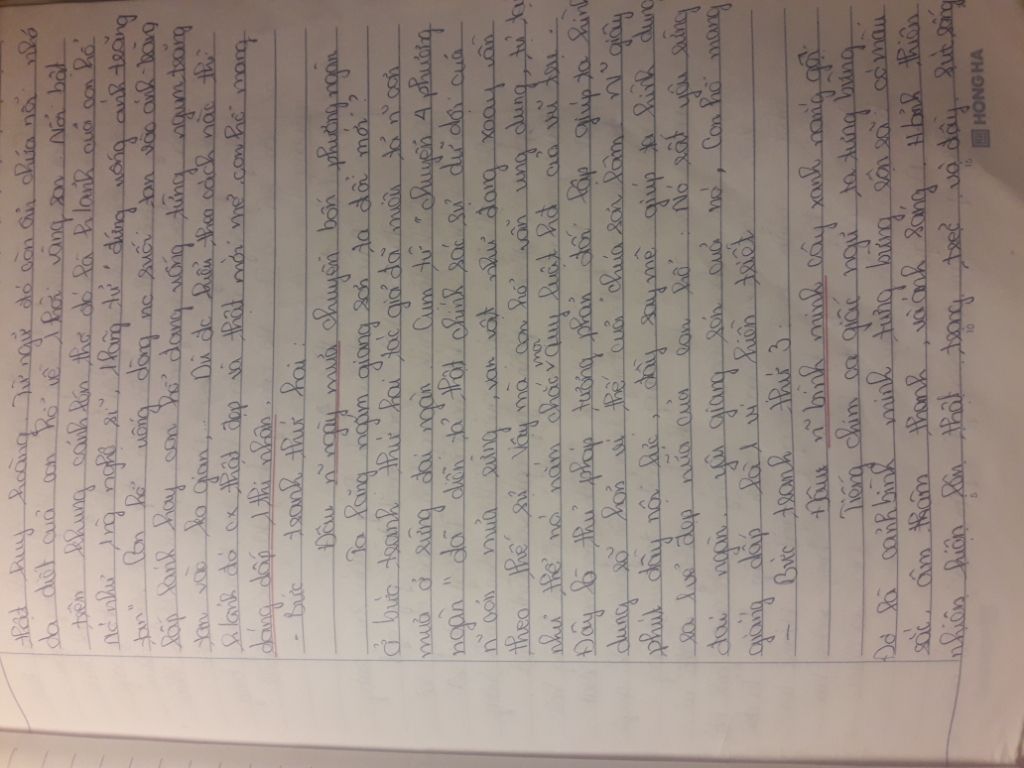 thật huy hoàng. Từ ngữ đó còn ẩn chứa nỗi nhớ
da diết của con hổ về 1 thời vàng son. Nổi bật
trên khung cảnh lên thơ đó là h/ảnh của con hổ
Đc nhà thơ nghệ sĩ, lãng tử "đứng uống ánh trăng
tan" Con hổ uống dòng nc suối tan vào ánh trăng
lấp lánh hay con hổ đang uống từng ngụm trăng
tan vào ko gian, Dù đc hiểu theo cách nào thì
h/ảnh đó cx thật đẹp và thật mới mẻ con hổ mang
dáng dấp 1 thi nhân.
- bức tranh thứ hai
Đâu n~ ngày mưa chuyển bốn phương ngàn
Ta lặng ngắm giang sơn ta đổi mới?
Ở bức tranh thứ hai tác giả đã miêu tả n~ cơn
mưa ở rừng đại ngàn Cụm từ "chuyển 4 phương
ngàn" đã diễn tả thật chính xác sự dữ dội của
n~ cơn mưa rừng, vạn vật như đang xoay vần
theo thế sự vậy mà con hổ vẫn ung dung, tự tại
như thể nó nắm chắc mọi quy luật của vũ trụ.
Đây là thủ pháp tương phản đối lập giúp ta hình
dung rõ hơn vị thế của chúa sơn lâm n~ giây
phút đầy nội lực, đầy say mê giúp ta hình dung
ra vẻ đẹp nữa của con hổ. Nó rất yêu rừng
đại ngàn, yêu giang sơn của nó, Con hổ mang
dáng dấp là 1 vị hiền triết
- Bức tranh thứ 3
Đâu n~ bình minh cây xanh nắng gội
Tiếng chim ca giấc ngủ ta tưng bừng
Đó là cảnh bình minh tưng bừng rộn rã có màu
sắc âm thầm thanh, và ánh sáng. Hình thiên
nhiên hiện lên thật trong trẻo và đầy sức sống
HONG HA
5 10 15